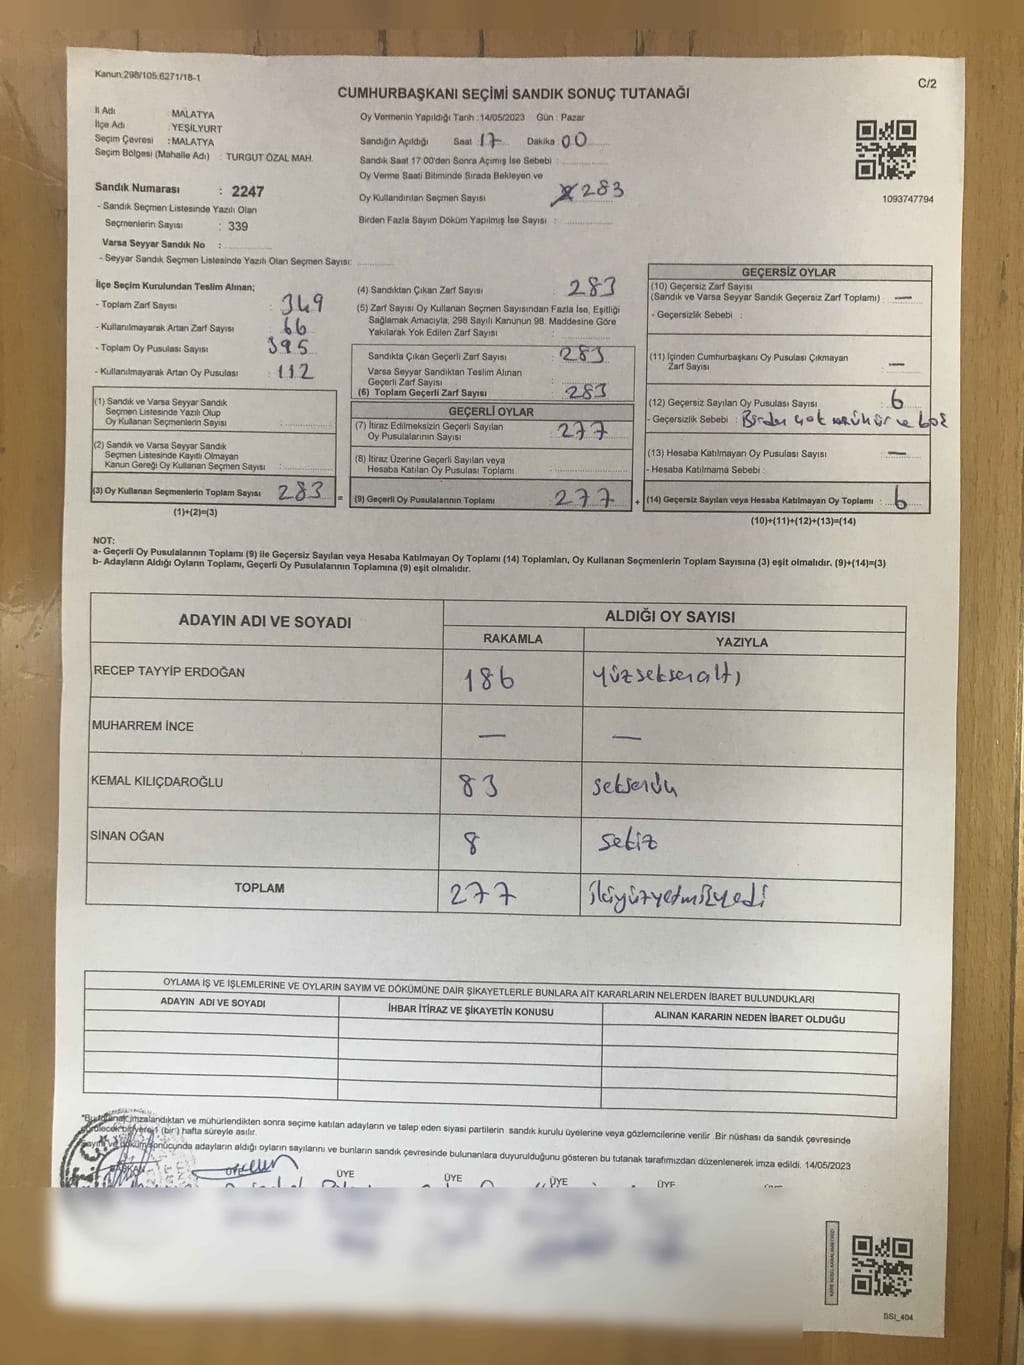 Kanun:298/105;6271/18-1
C/2
CUMHURBAŞKANI SEÇİMİ SANDIK SONUÇ TUTANAĞI
İl Adı : MALATYA
İlçe Adı : YEŞİLYURT
Seçim Çevresi : MALATYA
Seçim Bölgesi (Mahalle Adı) : TURGUT ÖZAL MAH.
Sandık Numarası : 2247
- Sandık Seçmen Listesinde Yazılı Olan
Seçmenlerin Sayısı : 339
Varsa Seyyar Sandık No :
- Seyyar Sandık Seçmen Listesinde Yazılı Olan Seçmen Sayısı:
Oy Vermenin Yapıldığı Tarih : 14/05/2023 Gün : Pazar
Sandığın Açıldığı Saat 17 Dakika 00
Sandık Saat 17:00'den Sonra Açımış İse Sebebi :
Oy Verme Saati Bitiminde Sırada Bekleyen ve
Oy Kullandırılan Seçmen Sayısı 283
Birden Fazla Sayım Döküm Yapılmış İse Sayısı :
1093747794
İlçe Seçim Kurulundan Teslim Alınan;
- Toplam Zarf Sayısı : 349
- Kullanılmayarak Artan Zarf Sayısı : 66
- Toplam Oy Pusulası Sayısı : 395
- Kullanılmayarak Artan Oy Pusulası : 112
(1) Sandık ve Varsa Seyyar Sandık
Seçmen Listesinde Yazılı Olup
Oy Kullanan Seçmenlerin Sayısı :
(2) Sandık ve Varsa Seyyar Sandık
Seçmen Listesinde Kayıtlı Olmayan
Kanun Gereği Oy Kullanan Seçmen Sayısı :
(3) Oy Kullanan Seçmenlerin Toplam Sayısı : 283 =
(1)+(2)=(3)
(4) Sandıktan Çıkan Zarf Sayısı : 283
(5) Zarf Sayısı Oy Kullanan Seçmen Sayısından Fazla İse, Eşitliği
Sağlamak Amacıyla; 298 Sayılı Kanunun 98. Maddesine Göre
Yakılarak Yok Edilen Zarf Sayısı :
Sandıkta Çıkan Geçerli Zarf Sayısı : 283
Varsa Seyyar Sandıktan Teslim Alınan
Geçerli Zarf Sayısı :
(6) Toplam Geçerli Zarf Sayısı : 283
GEÇERLİ OYLAR
(7) İtiraz Edilmeksizin Geçerli Sayılan
Oy Pusulalarının Sayısı : 277
(8) İtiraz Üzerine Geçerli Sayılan veya
Hesaba Katılan Oy Pusulası Toplamı :
(9) Geçerli Oy Pusulalarının Toplamı : 277 +
GEÇERSİZ OYLAR
(10) Geçersiz Zarf Sayısı
(Sandık ve Varsa Seyyar Sandık Geçersiz Zarf Toplamı) : —
- Geçersizlik Sebebi :
(11) İçinden Cumhurbaşkanı Oy Pusulası Çıkmayan
Zarf Sayısı : —
(12) Geçersiz Sayılan Oy Pusulası Sayısı : 6
- Geçersizlik Sebebi : Birden çok mühür ve boş
(13) Hesaba Katılmayan Oy Pusulası Sayısı : —
- Hesaba Katılmama Sebebi :
(14) Geçersiz Sayılan veya Hesaba Katılmayan Oy Toplamı : 6
(10)+(11)+(12)+(13)=(14)
NOT:
a- Geçerli Oy Pusulalarının Toplamı (9) ile Geçersiz Sayılan veya Hesaba Katılmayan Oy Toplamı (14) Toplamları, Oy Kullanan Seçmenlerin Toplam Sayısına (3) eşit olmalıdır. (9)+(14)=(3)
b- Adayların Aldığı Oyların Toplamı, Geçerli Oy Pusulalarının Toplamına (9) eşit olmalıdır.
ADAYIN ADI VE SOYADI
ALDIĞI OY SAYISI
RAKAMLA YAZIYLA
RECEP TAYYİP ERDOĞAN 186 yüzseksenaltı
MUHARREM İNCE — —
KEMAL KILIÇDAROĞLU 83 seksenüç
SİNAN OĞAN 8 sekiz
TOPLAM 277 ikiyüzyetmişyedi
OYLAMA İŞ VE İŞLEMLERİNE VE OYLARIN SAYIM VE DÖKÜMÜNE DAİR ŞİKAYETLERLE BUNLARA AİT KARARLARIN NELERDEN İBARET BULUNDUKLARI
ADAYIN ADI VE SOYADI İHBAR İTİRAZ VE ŞİKAYETİN KONUSU ALINAN KARARIN NEDEN İBARET OLDUĞU
"Bu tutanak imzalandıktan ve mühürlendikten sonra seçime katılan adayların ve talep eden siyasi partilerin sandık kurulu üyelerine veya gözlemcilerine verilir .Bir nüshası da sandık çevresinde
görülecek bir yere 1 (bir) hafta süreyle asılır.
Sayım ve döküm sonucunda adayların aldığı oyların sayılarını ve bunların sandık çevresinde bulunanlara duyurulduğunu gösteren bu tutanak tarafımızdan düzenlenerek imza edildi. 14/05/2023
ÜYE ÜYE ÜYE ÜYE
BSI_404